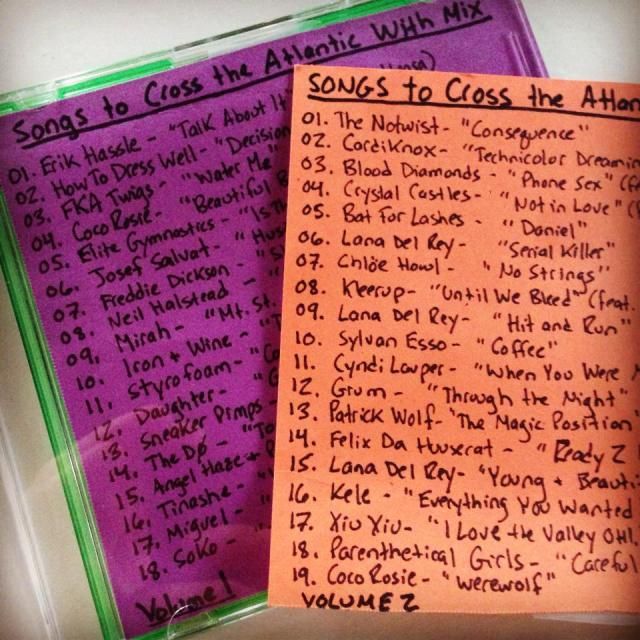 Songs to Cross the Atlantic With Mix
01. Erik Hassle - "Talk About It"
02. How To Dress Well - "Decision
03. FKA Twigs - "Water Me"
04. Coco Rosie - "Beautiful
05. Elite Gymnastics - "Is Th
06. Josef Salvat - "Hus
07. Freddie Dickson -
08. Neil Halstead -
09. Mirah - "Mt. St.
10. Iron + Wine -
11. Styrofoam -
12. Daughter -
13. Sneaker Pimps
14. The Dø -
15. Angel Haze +
16. Tinashe -
17. Miguel -
18. Soko -
Volume 1
SONGS to Cross the Atlan
01. The Notwist - "Consequence"
02. CordiKnox - "Technicolor Dreamin
03. Blood Diamonds - "Phone Sex" (
04. Crystal Castles - "Not in Love" (
05. Bat For Lashes - "Daniel"
06. Lana Del Rey - "Serial Killer"
07. Chlöe Howl - "No Strings"
08. Kleerup - "Until We Bleed" (feat.
09. Lana Del Rey - "Hit and Run"
10. Sylvan Esso - "Coffee"
11. Cyndi Lauper - "When You Were
12. Grum - "Through the Night"
13. Patrick Wolf - "The Magic Position
14. Felix Da Housecat - "Ready 2
15. Lana Del Rey - "Young + Beauti
16. Kele - "Everything You Wanted
17. Xiu Xiu - "I Love the Valley OH!
18. Parenthetical Girls - "Careful
19. Coco Rosie - "Werewolf"
VOLUME 2